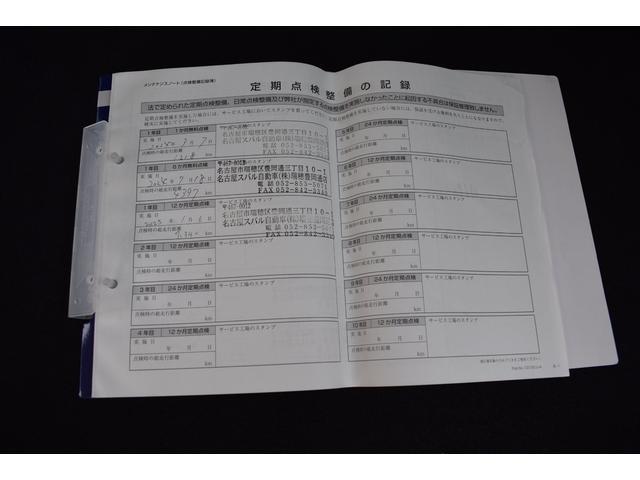 メンテナンスノート（点検整備記録簿）
定期点検整備の記録
法で定められた定期点検整備、日常点検整備及び弊社が指定する点検整備を実施しなかったことに起因する不具合は保証修理致しません。
1年目 1か月無料点検
実施日 年 月 日
点検時の総走行距離 km
1年目 6か月無料点検 サービス工場のスタンプ
実施日 年 7月 18日
点検時の総走行距離 km
名古屋市瑞穂区豊岡通三丁目10-1
名古屋スバル自動車(株)瑞穂豊岡通店
電話 052-853-5071
FAX 052-842-
1年目 12か月定期点検 サービス工場のスタンプ
実施日 2025年 1月 日
点検時の総走行距離 km
名古屋市瑞穂区豊岡通三丁目10-
名古屋スバル自動車(株)瑞穂
電話 052-853-
FAX 052-842-
2年目 12か月定期点検 サービス工場のスタンプ
実施日 年 月 日
点検時の総走行距離 km
3年目 24か月定期点検 サービス工場のスタンプ
実施日 年 月 日
点検時の総走行距離 km
4年目 12か月定期点検 サービス工場のスタンプ
実施日 年 月 日
点検時の総走行距離 km
5年目 24か月定期点検 サービス工場のスタンプ
実施日 年 月 日
点検時の総走行距離 km
6年目 12か月定期点検 サービス工場のスタンプ
実施日 年 月 日
点検時の総走行距離 km
7年目 24か月定期点検 サービス工場のスタンプ
実施日 年 月 日
点検時の総走行距離 km
8年目 12か月定期点検 サービス工場のスタンプ
実施日 年 月 日
点検時の総走行距離 km
9年目 24か月定期点検 サービス工場のスタンプ
実施日 年 月 日
点検時の総走行距離 km
10年目 12か月定期点検 サービス工場のスタンプ
実施日 年 月 日
点検時の総走行距離 km